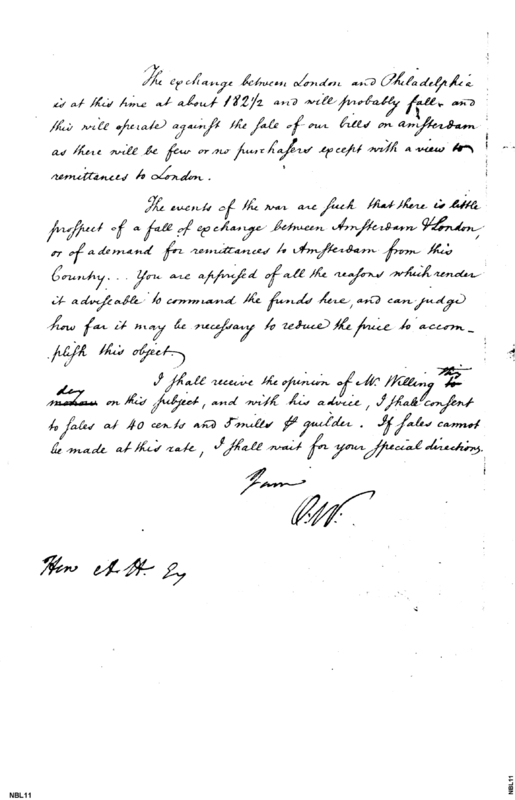 The exchange between London and Philadelphia
is at this time at about 182½ and will probably fall, and
this will operate against the sale of our bills on amsterdam
as there will be few or no purchasers except with a view to
remittances to London.
The events of the war are such that there is little
prospect of a fall of exchange between Amsterdam & London,
or of a demand for remittances to Amsterdam from this
Country... You are apprised of all the reasons which render
it adviseable to command the funds here, and can judge
how far it may be necessary to reduce the price to accom-
plish this object.
I shall receive the opinion of Mr. Willing this
day on this subject, and with his advice, I shall consent
to sales at 40 cents and 5 mills ⅌ guilder. If sales cannot
be made at this rate, I shall wait for your special directions.
I am
O.W.
Hon A. H. Esq
NBL11
NBL11